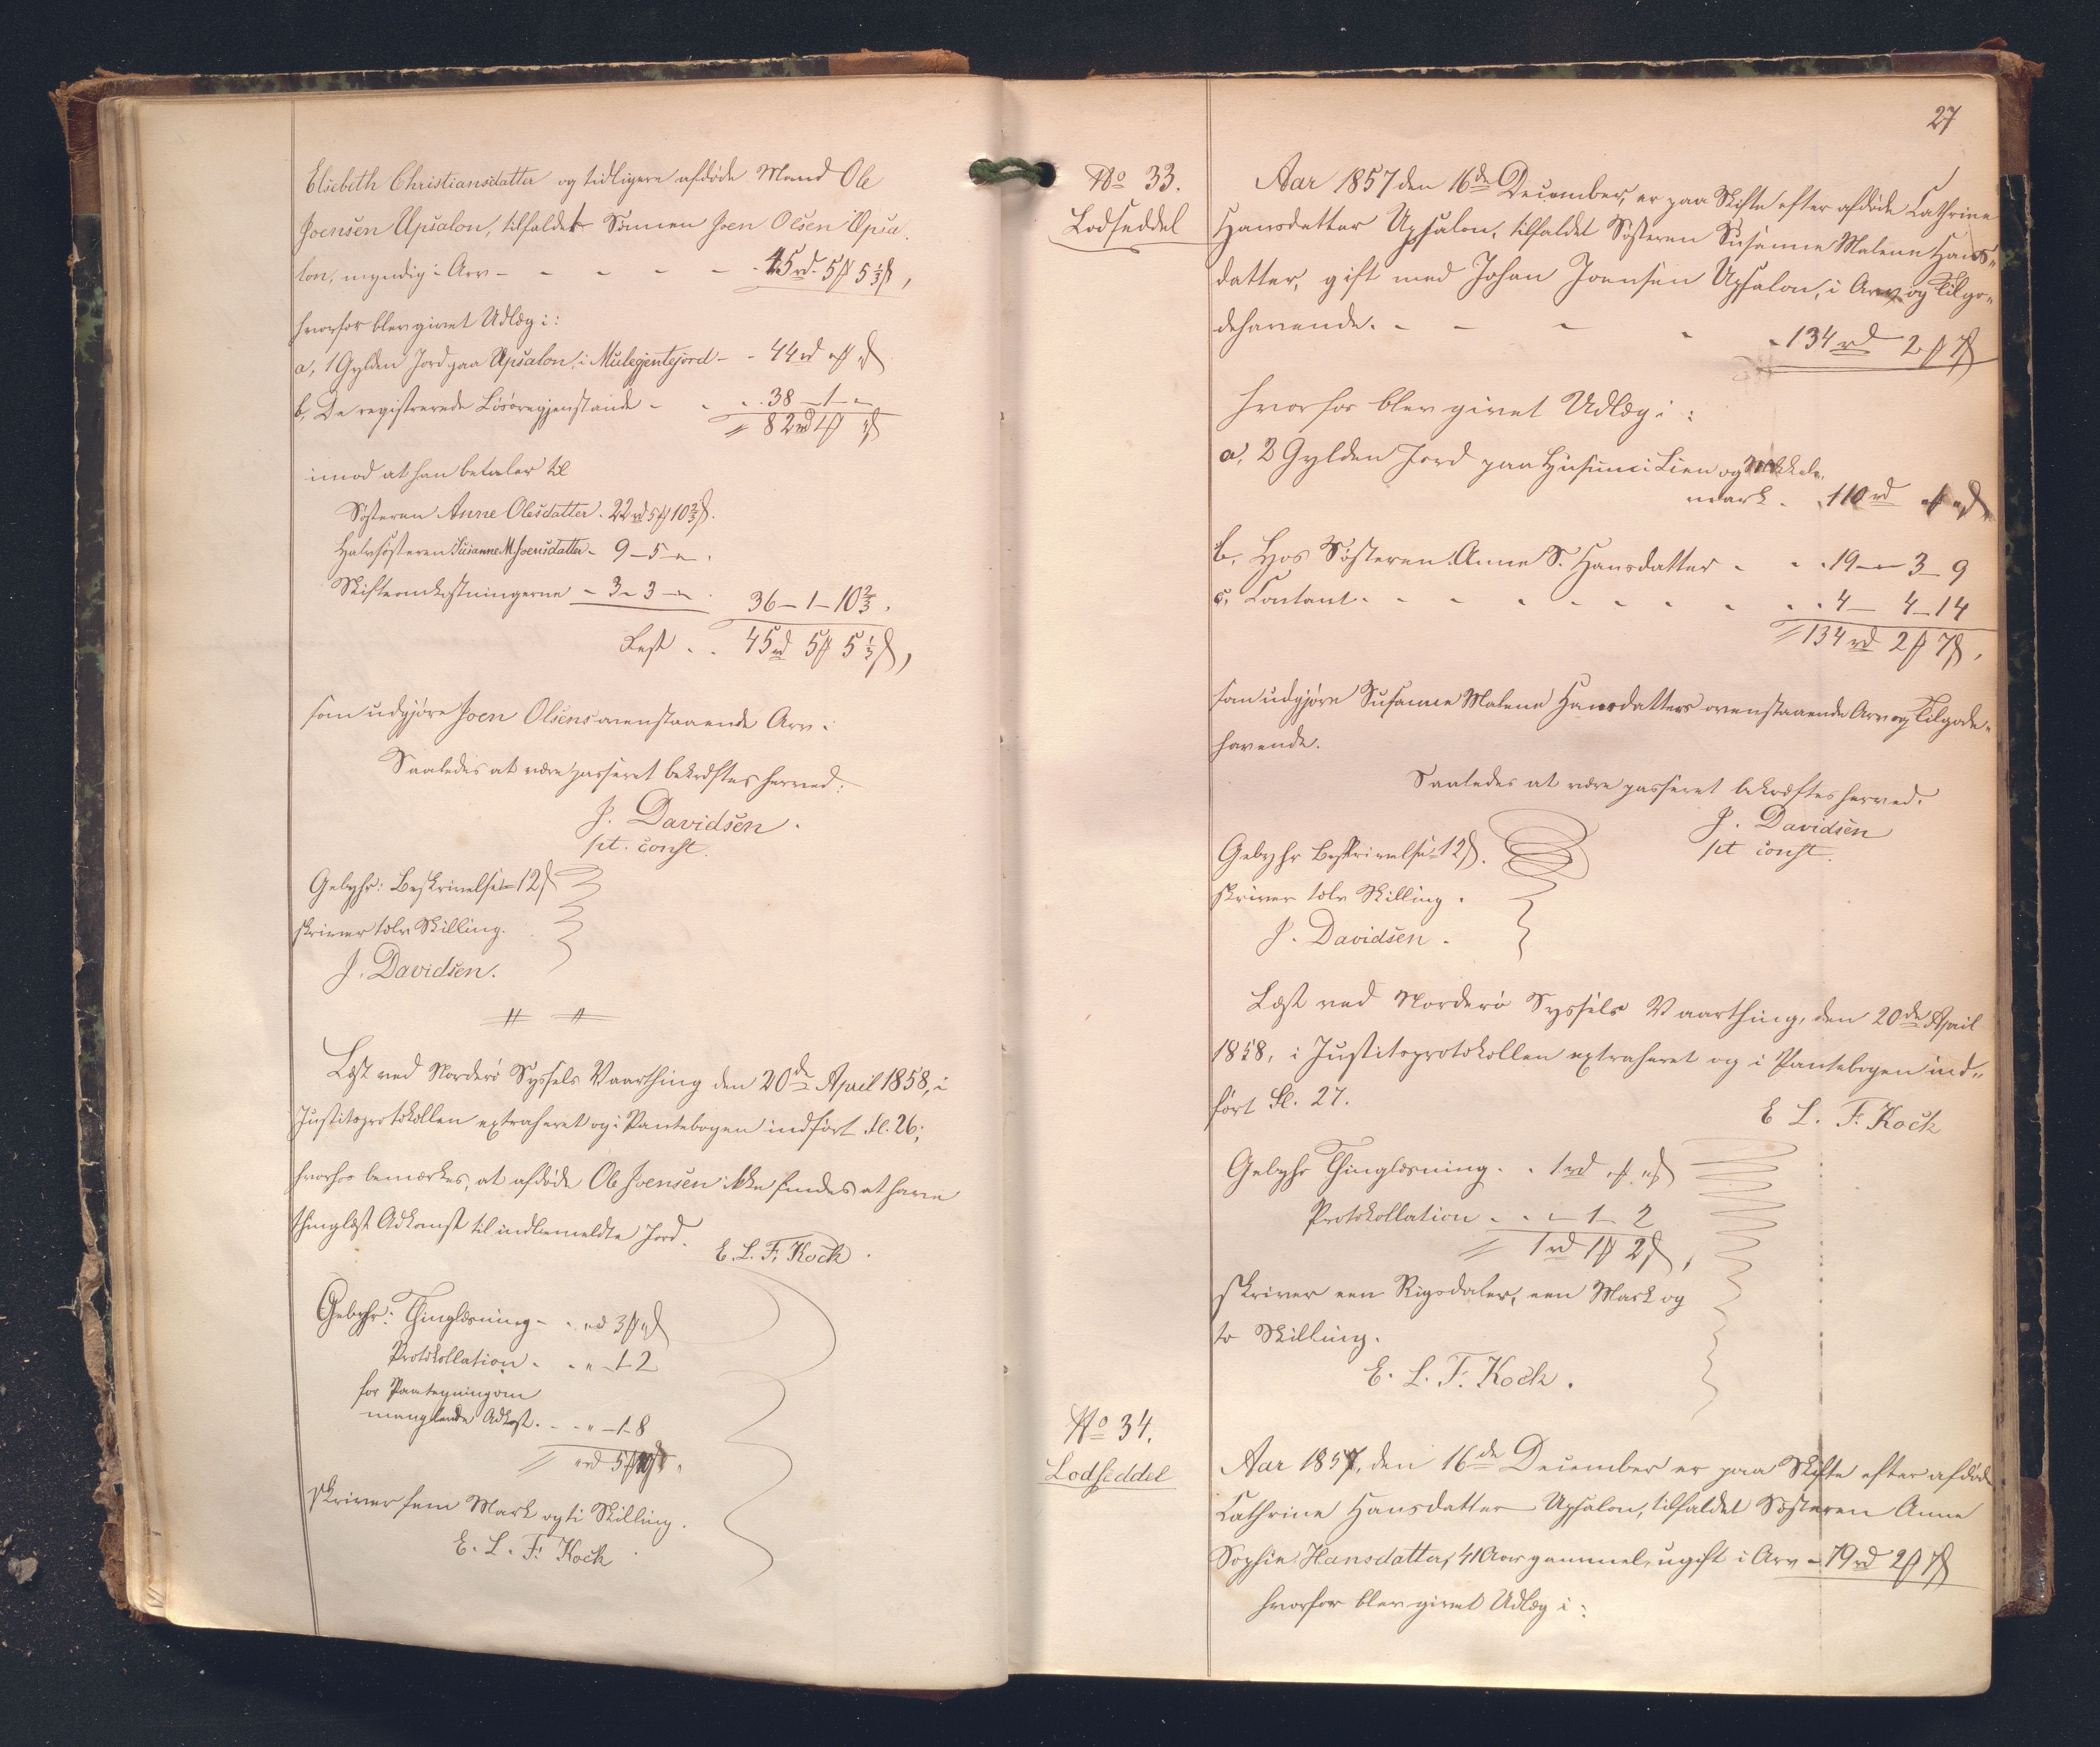 Elsebeth Christiansdatter og tidligere afdøde Mand Ole
Joensen Upsalon, tilfaldet Sønnen Joen Olsen Upsa-
lon, myndig i Arv - - - - - - 45 rd. 5 ꝑ 5 1/3 ß,
hvorfor blev givet Udlæg i:
a, 1 Gylden Jord paa Upsalon, i Mulegjentejord - - 44 rd " ꝑ " ß
b, De registrerede Løsøregjenstande - - - 38 - 1 - "
= 82 rd 1 ꝑ " ß
imod at han betaler til
Søsteren Anne Olesdatter - 22 rd 5 ꝑ 10 2/3 ß.
Halvsøsteren Susanne M. Joensdatter - 9 - 5 - " .
Skifteomkostningerne - 3 - 3 - " . 36 - 1 - 10 2/3 .
Rest . . 45 rd 5 ꝑ 5 1/3 ß,
som udgjøre Joen Olsens ovenstaaende Arv.
Saaledes at være passeret bekræftes herved.
J. Davidsen.
pt. const.
Gebyhr: Beskrivelse = 12 ß
skriver tolv Skilling.
J. Davidsen.
Læst ved Norderø Syssels Vaarthing den 20de April 1858, i
Justitsprotokollen extraheret og i Pantebogen indført Fl. 26;
hvorhos bemærkes, at afdøde Ole Joensen ikke findes at have
thinglæst Adkomst til indbemeldte Jord.
E. L. F. Kock.
Gebyhr: Thinglæsning - - " rd 3 ꝑ " ß
Protokollation - - " - 1 - 2
for Paategning om
manglende Adkst. - - " - 1 - 8
= " rd 5 ꝑ 10 ß.
skriver fem Mark og ti Skilling.
E. L. F. Kock
27
No 33.
Lodseddel
Aar 1857 den 16de December, er paa Skifte efter afdøde Cathrine
Hansdatter Upsalon, tilfaldet Søsteren Susanne Malene Hans-
datter, gift med Johan Joensen Upsalon, i Arv og Tilgo-
dehavende. - - - - - 134 rd 2 ꝑ 7 ß
hvorfor blev givet Udlæg i:
a, 2 Gylden Jord paa Husum i Lien og
mark. . 110 rd " ꝑ " ß
b. Hos Søsteren Anne S. Hansdatter - - - 19 - 3 - 9
c. Contant - - - - - - - - - 4 - 4 - 14
= 134 rd 2 ꝑ 7 ß.
som udgjøre Susanne Malene Hansdatters ovenstaaende Arv og Tilgode-
havende.
Saaledes at være passeret bekræftes herved.
J. Davidsen
pt const.
Gebyhr Beskrivelse = 12 ß.
skriver tolv Skilling.
J. Davidsen.
Læst ved Norderø Syssels Vaarthing, den 20de April
1858, i Justitsprotokollen extraheret og i Pantebogen ind-
ført Fl. 27.
E L. F. Kock
Gebyhr Thinglæsning. . 1 rd " ꝑ " ß
Protokollation - . " - 1 - 2
= 1 rd 1 ꝑ 2 ß,
skriver een Rigsdaler, een Mark og
to Skilling.
E. L. F. Kock.
No 34.
Lodseddel
Aar 1857, den 16de December er paa Skifte efter afdøde
Cathrine Hansdatter Upsalon, tilfaldet Søsteren Anne
Sophie Hansdatter, 41 Aar gammel, ugift i Arv - 79 rd 2 ꝑ 7 ß
hvorfor blev givet Udlæg i: